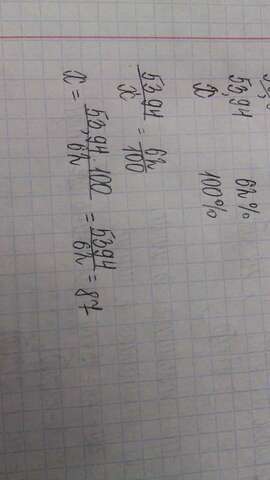 53,94 62%
x 100%
53,94/x = 62/100
x = 53,94·100/62 = 5394/62 = 87